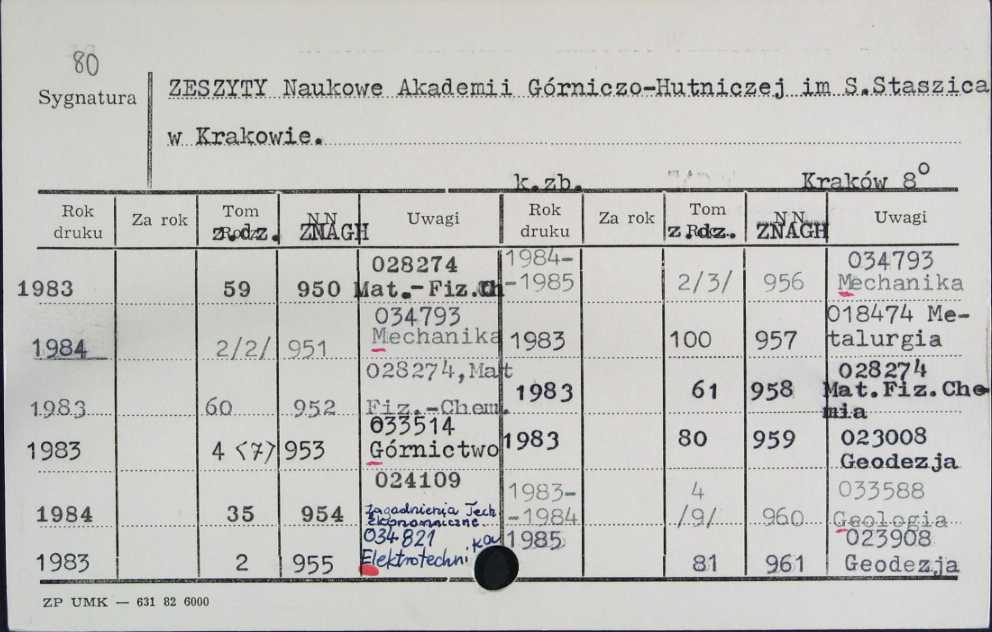 80
Sygnatura
ZESZYTY Naukowe Akademii Górniczo-Hutniczej im S.Staszica
w Krakowie.
k.zb. Kraków 8°
Rok druku Za rok Tom z.dz. NN ZNAGH Uwagi Rok druku Za rok Tom z.dz. NN ZNAGH Uwagi
1983 59 950 028274 Mat.-Fiz.Ch
1984 2/2/ 951 034793 Mechanika
1983 60 952 028274,Mat Fiz.-Chem.
1983 4 <7> 953 033514 Górnictwo
1984 35 954 024109 Zagadnienia Tech Ekonomiczne
1983 2 955 034821 Elektrotechnika
1984-1985 2/3/ 956 034793 Mechanika
1983 100 957 018474 Me-talurgia
1983 61 958 028274 Mat.Fiz.Che-mia
1983 80 959 023008 Geodezja
1983--1984 4 /9/ 960 033588 Geologia
1985 81 961 023908 Geodezja
ZP UMK — 631 82 6000